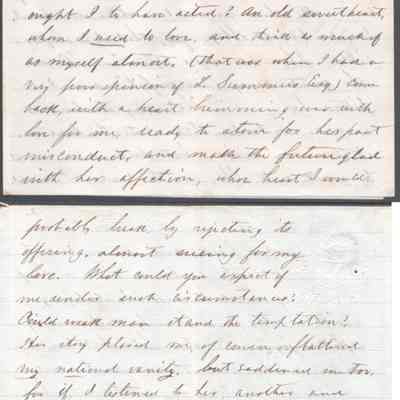 ought I to have acted? An old sweetheart,
whom I used to love, and think as much of
as myself almost. (That was when I had a
very poor opinion of L. Summers Esq) came
back, with a heart brimming over with
love for me, ready to atone for her past
misconduct, and make the future glad
with her affection, whose heart I would
probably break by rejecting its
offering, almost sueing for my
love. What could you expect of
me under such circumstances?
Could weak man stand the temptation?
Her story pleased me, of course flattered
my national vanity, but saddened me too,
for if I listened to her, another and